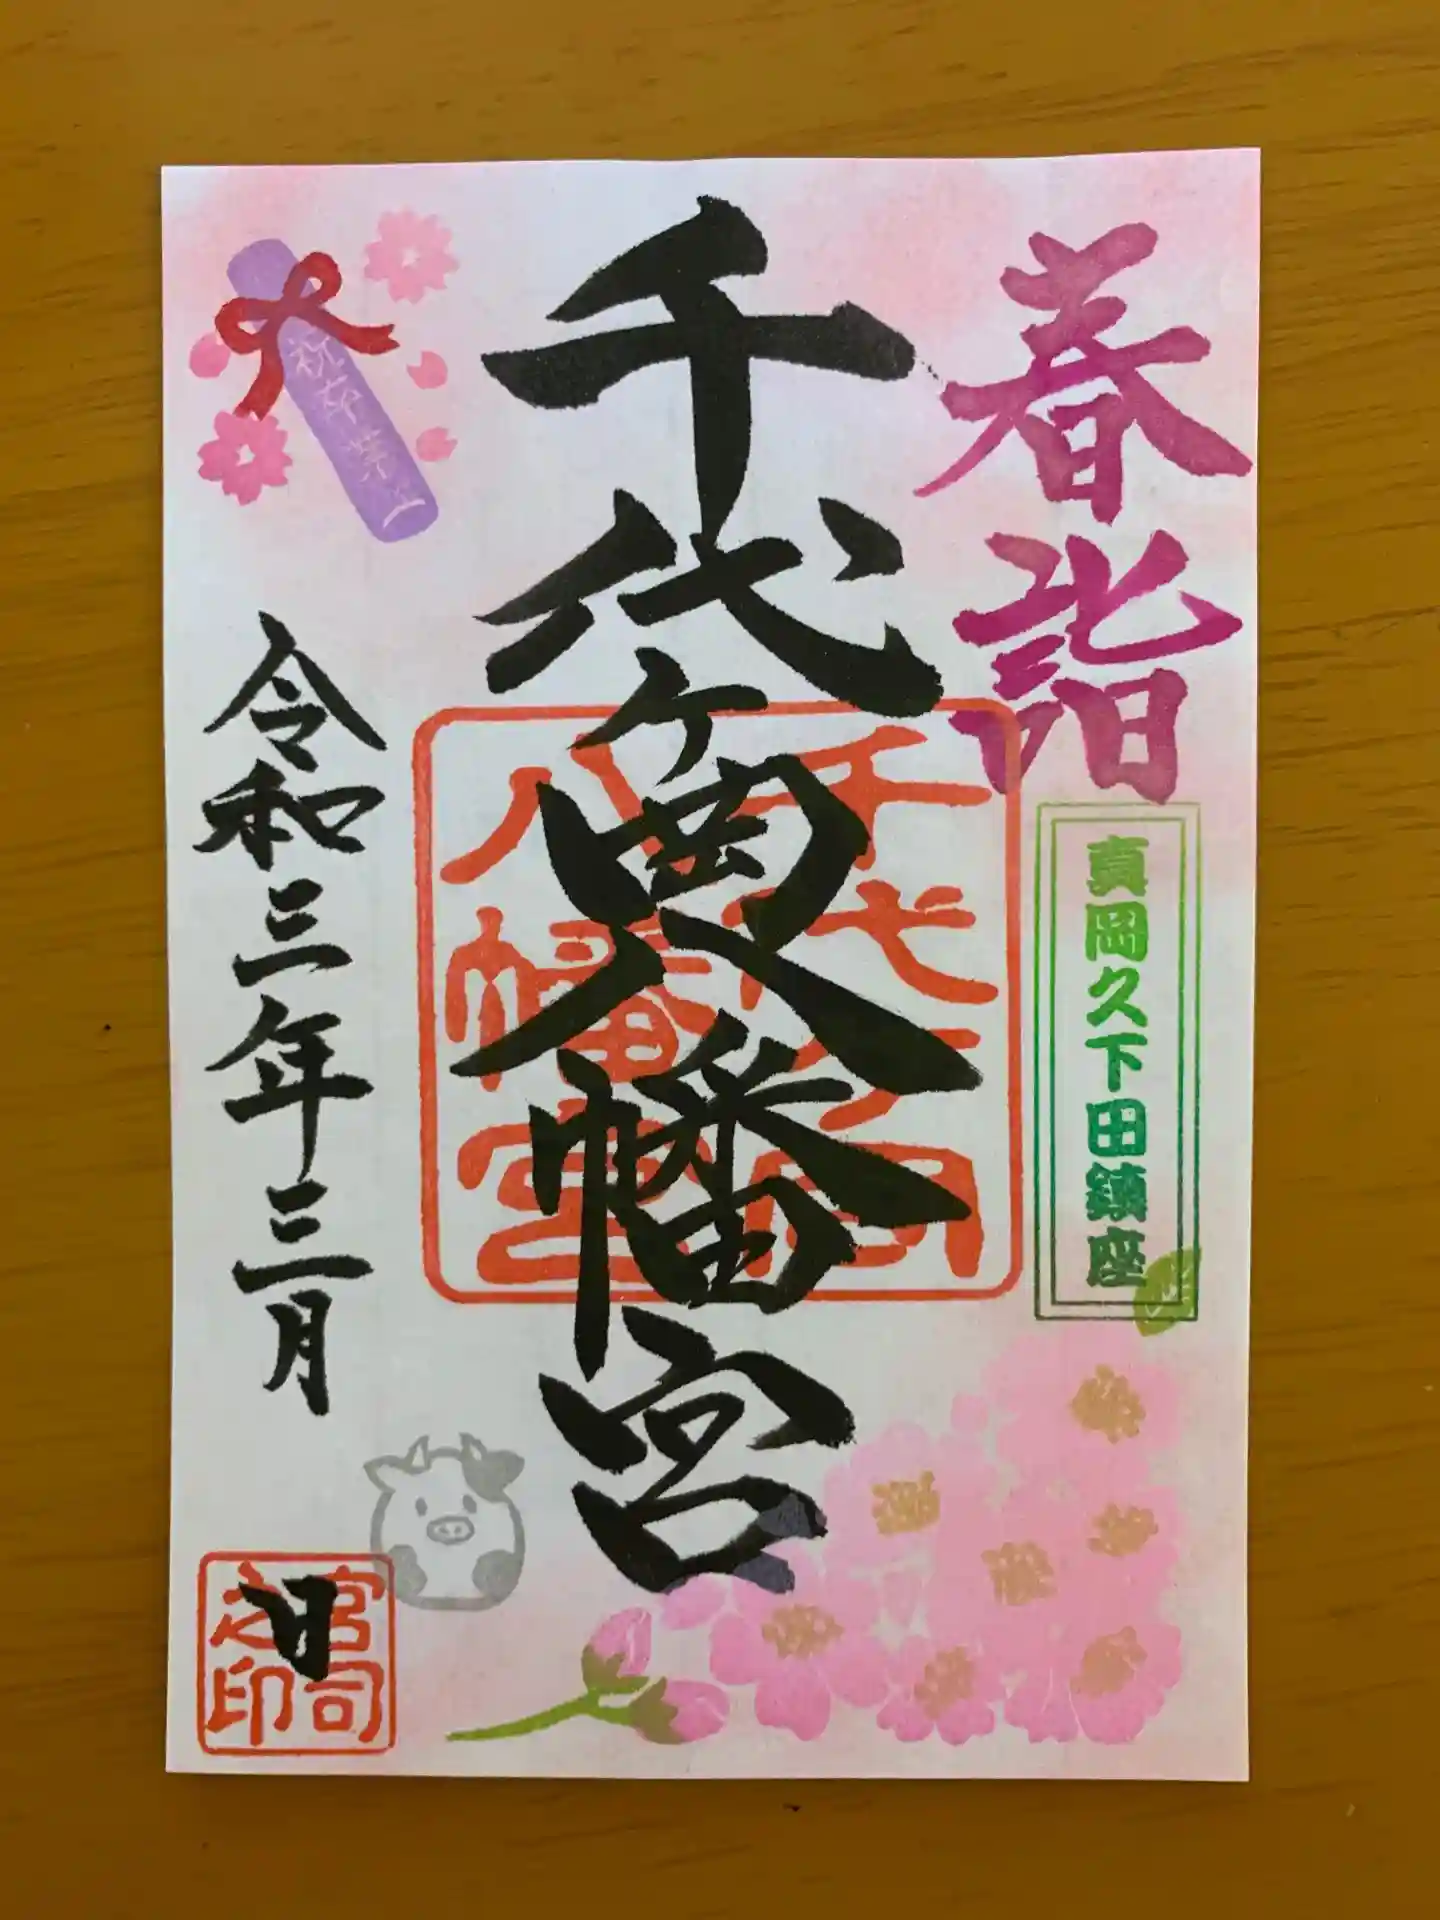 春詣
真岡久下田鎮座
千代ヶ岡八幡宮
千代ヶ岡
八幡宮
祝卒業
令和三年三月
日
宮司
之印